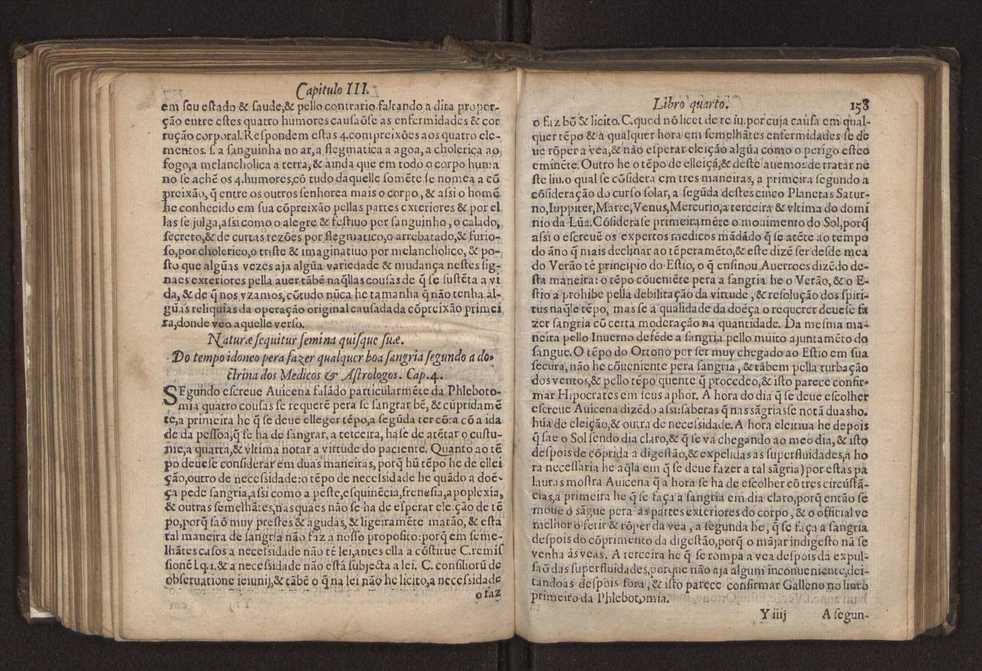 Capitulo III.
em seu estado & saude,& pello contrario faltando a dita propor-
ção entre estes quatro humores causãose as enfermidades & cor
rução corporal. Respondem estas 4.compreixões aos quatro ele-
mentos. s. a sanguinha no ar, a flegmatica a agoa, a cholerica ao
fogo,a melancholica a terra,& ainda que em todo o corpo huma
no se achẽ os 4.humores,cõ tudo daquelle somẽte se nomea a cõ
preixão, q̃ entre os outros senhorea mais o corpo, & assi o homẽ
he conhecido em sua cõpreixão pellas partes exteriores & por el
las se julga,assi como o alegre & festiuo por sanguinho, o calado,
secreto,& de curtas rezões por flegmatico,o arrebatado,& furio-
so,por cholerico,o triste & imaginatiuo por melancholico, & po-
sto que algũas vezes aja algũa variedade & mudança nestes sig-
naes exteriores pella auer tãbẽ naq̃llas cousas de q̃ se sustẽta a vi
da, & de q̃ nos vzamos, cõtudo nũca he tamanha q̃ não tenha al-
gũas reliquias da operação original causada da cõpreixão primei
ra,donde veo aquelle verso.
Naturæ sequitur semina quisque suæ.
Do tempo idoneo pera fazer qualquer boa sangria segundo a do-
ctrina dos Medicos & Astrologos. Cap.4.
SEgundo escreue Auicena falãdo particularmẽte da Phleboto-
mia quatro cousas se requerẽ pera se sangrar bẽ, & cũpridamẽ
te,a primeira he q̃ se deue elleger tẽpo,a segũda ter cõta cõ a ida
de da pessoa,q̃ se ha de sangrar, a terceira, hase de atẽtar o custu-
me,a quarta,& vltima notar a virtude do paciente. Quanto ao tẽ
po deuese considerar em duas maneiras, porq̃ hũ tẽpo he de ellei
ção,outro de necessidade:o tẽpo de necessidade he quãdo a doẽ-
ça pede sangria,assi como a peste,esquinẽcia,frenesia,apoplexia,
& outras semelhãtes,nas quaes não se ha de esperar eleição de tẽ
po,porq̃ saõ muy prestes & agudas,& ligeiramẽte matão, & esta
tal maneira de sangria não faz a nosso proposito: porq̃ em seme-
lhãtes casos a necessidade não tẽ lei,antes ella a cõstitue C.remis
sionẽ 1.q.1.& a necessidade não está subjecta a lei. C. consiliorũ de
obseruatione ieiunij,& tãbẽ o q̃ na lei não he licito,a necessidade
o faz
Libro quarto. 158
o faz bõ & licito. C.quod nõ licet de re iu. por cuja causa em qual-
quer tẽpo & a qualquer hora em semelhãtes enfermidades se de
ue rõper a vea,& não esperar eleição algũa como o perigo esteo
eminẽte. Outro he o tẽpo de elleiçã,& deste auemos de tratar ne
ste liu.o qual se cõsidera em tres maneiras, a primeira segundo a
cõsideração do curso solar, a segũda destes cinco Planetas Satur-
no,Iuppiter,Marte,Venus,Mercurio,a terceira & vltima do domi
nio da Lũa.Cõsiderase primeiramẽte o mouimento do Sol,porq̃
assi o escreuẽ os expertos medicos mãdãdo q̃ se atẽte ao tempo
do ãno q̃ mais declinar ao tẽperamẽto,& este dizẽ ser desde mea
do Verão tẽ principio do Estio, o q̃ ensinou Auerroes dizẽdo de-
sta maneira: o tẽpo cõueniẽte pera a sangria he o Verão, & o E-
stio a prohibe pella debilitação da virtude , & resolução dos spiri-
tus naq̃le tẽpo, mas se a qualidade da doẽça o requerer deuese fa
zer sangria cõ certa moderação na quantidade. Da mesma ma-
neira pello Inuerno defẽde a sangria pello muito ajuntamẽto do
sangue. O tẽpo do Ottono por ser muy chegado ao Estio em sua
secura, não he cõueniente pera sangria , & tãbem pella turbação
dos ventos,& pello tẽpo quente q̃ procedeo,& isto parece confir-
mar Hipocrates em seus aphor. A hora do dia q̃ se deue escolher
escreue Auicena dizẽdo assi:saberas q̃ nas sãgrias se notã duas ho.
hũa de eleição,& outra de necessidade. A hora eleitiua he depois
q̃ sae o Sol sendo dia claro,& q̃ se va chegando ao meo dia, & isto
despois de cõprida a digestão,& expelidas as superfluidades,a ho
ra necessaria he aq̃la em q̃ se deue fazer a tal sãgria) por estas pa
lauras mostra Auicena q̃ a hora se ha de escolher cõ tres circũstã-
cias,a primeira he q̃ se faça a sangria em dia claro,porq̃ então se
moue o sãgue pera as partes exteriores do corpo, & o official ve
melhor o ferir & rõper da vea , a segunda he, q̃ se faça a sangria
despois do cõprimento da digestão,porq̃ o mãjar indigesto nã se
venha ás veas. A terceira he q̃ se rompa a vea despois da expul-
saõ das superfluidades,porque não aja algum inconueniente,dei-
tandoas despois fora, & isto parece confirmar Galleno no liuro
primeiro da Phlebotomia.
Y iiij A segun-